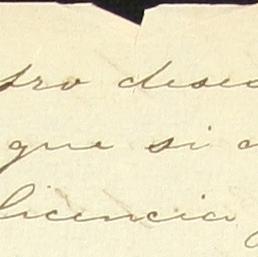 pro dese
que si a
licencia